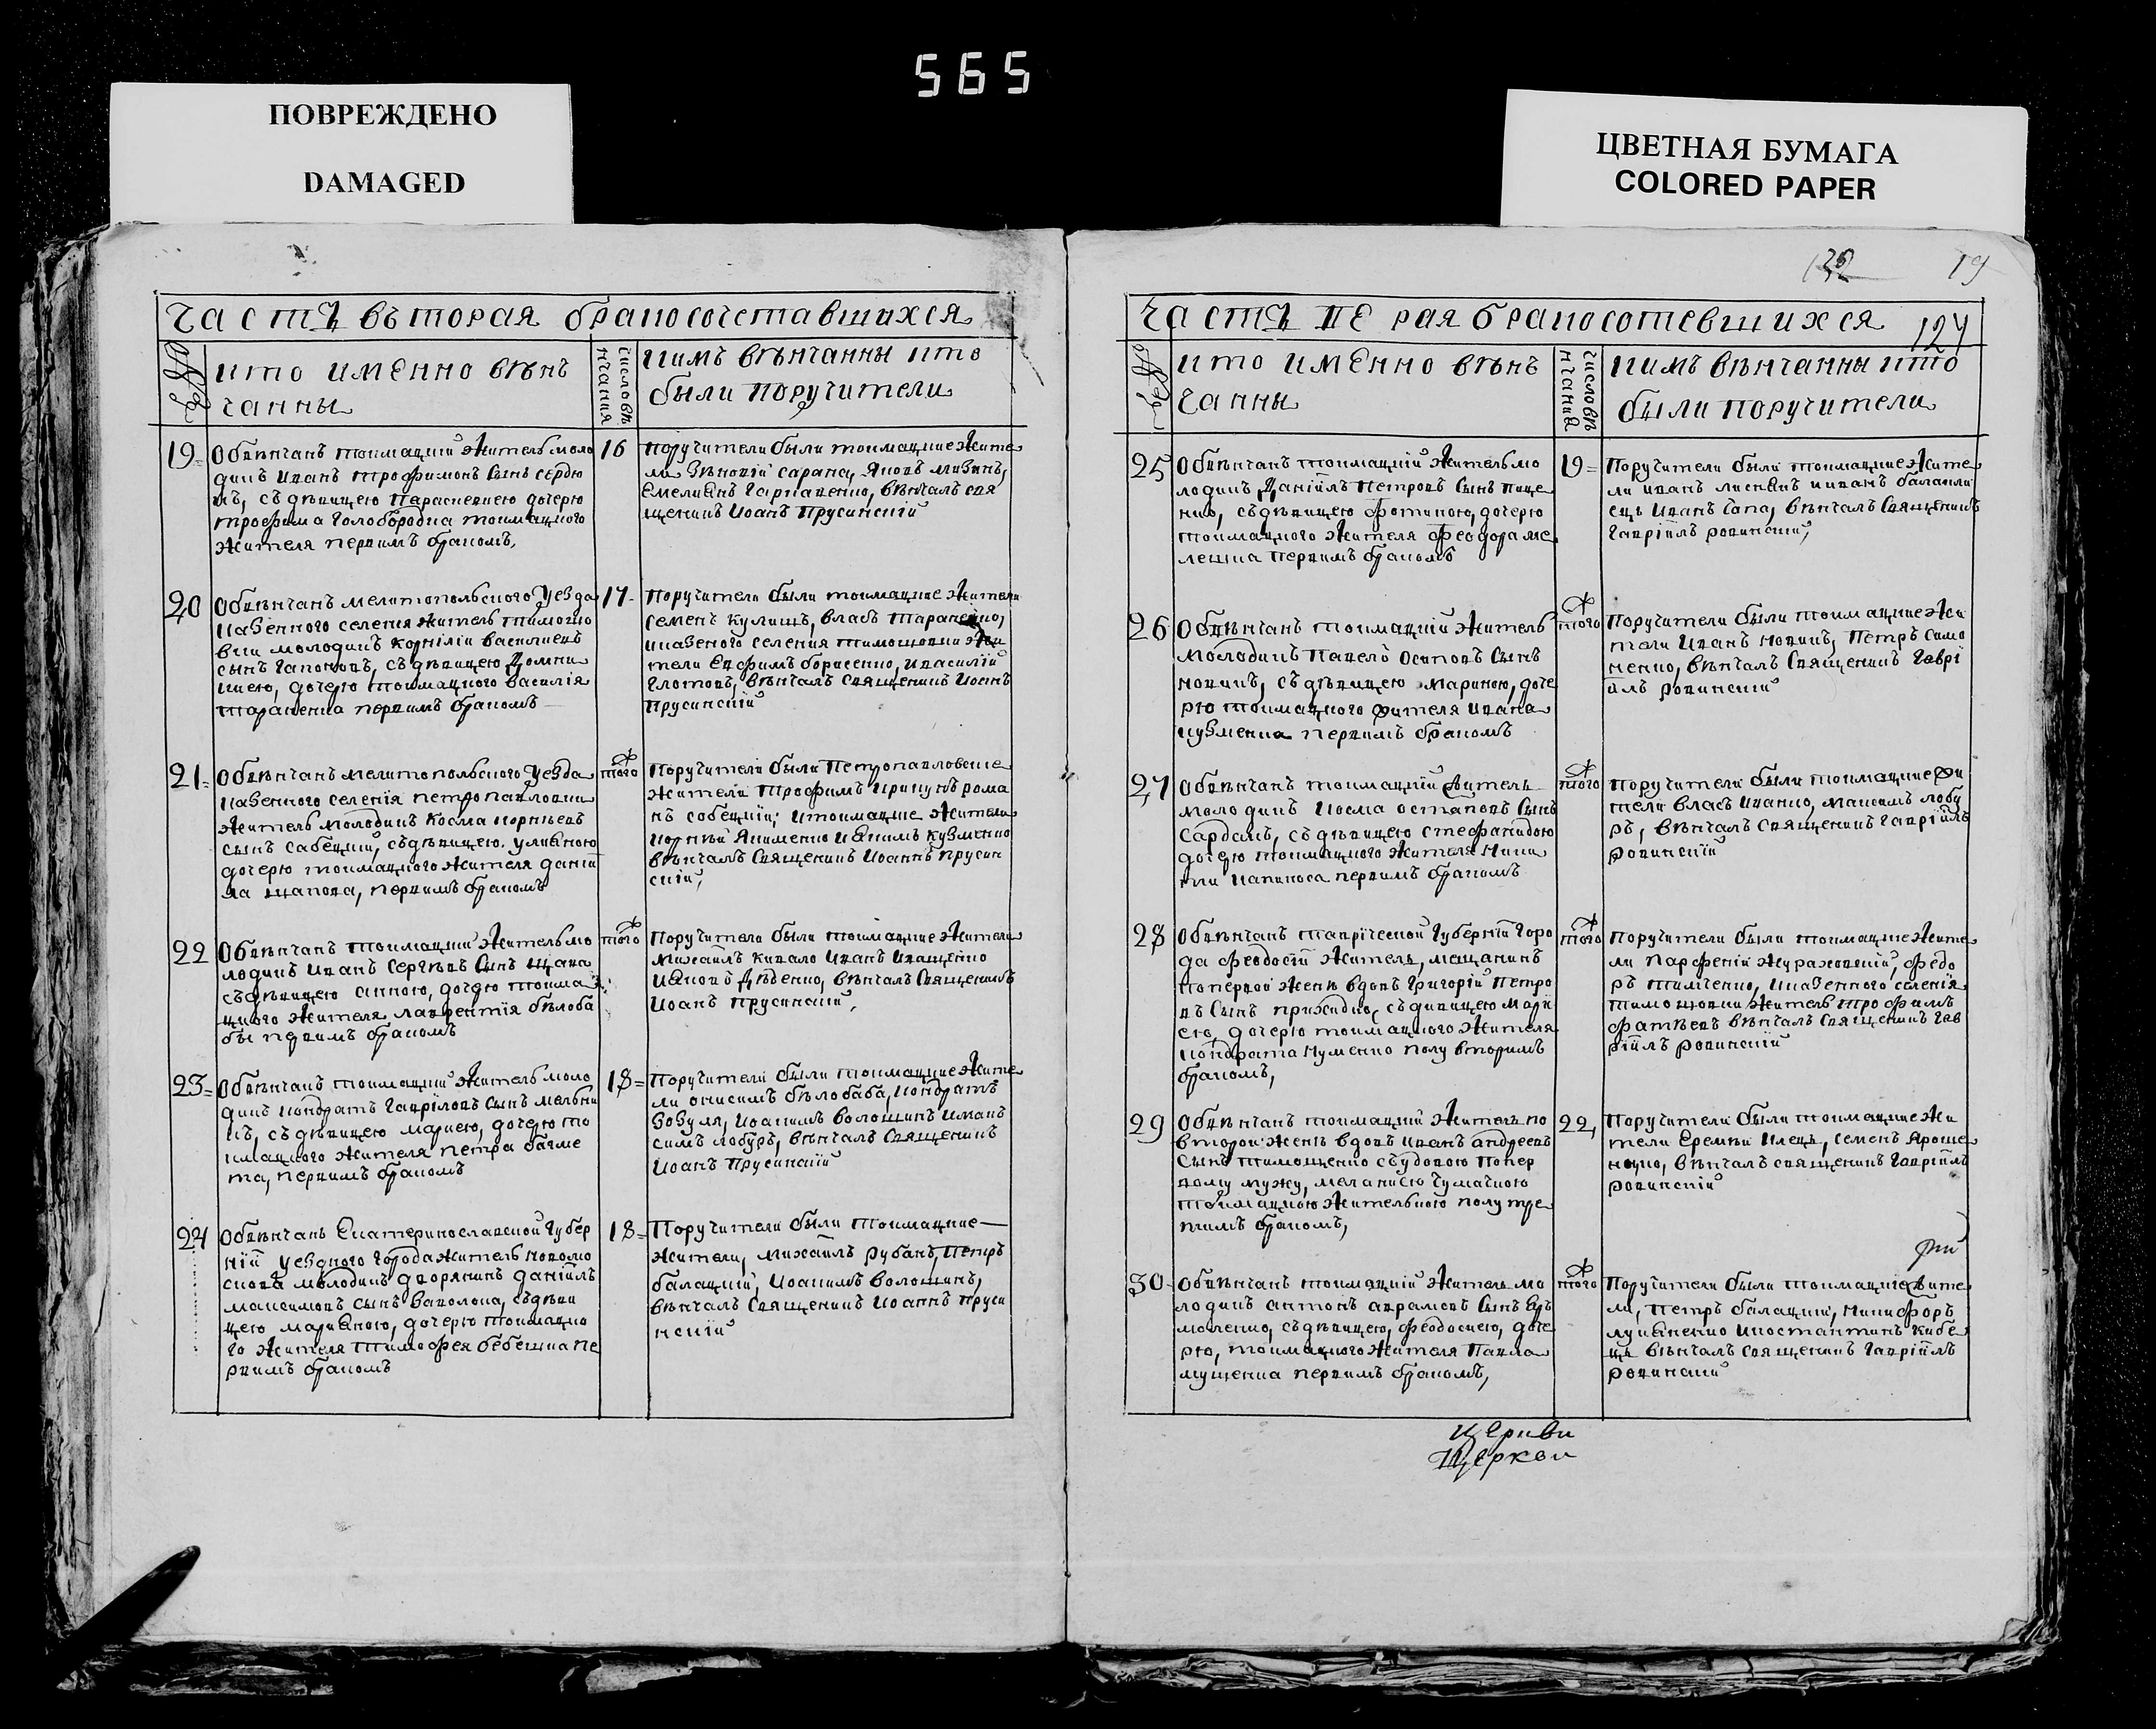 565
ПОВРЕЖДЕНО
DAMAGED
ЦВЕТНАЯ БУМАГА
COLORED PAPER
19
часть вторая бракосочетавшихся
кто именно вѣн
чанны
число вѣ
нчания
кимъ вѣнчанны и кто
были поручители
19
Обвѣнчанъ токмацкий житель моло
дикъ иванъ трофимовъ сынъ сердю
къ, съ дѣвицею параскевиею дочерю
трофима голобородка токмацкого
жителя первимъ бракомъ,
16
поручители были токмацкие жите
ли Зѣновій сарана, Яковъ мизинъ,
Емелианъ гаркавенко, вѣнчалъ свя
щеникъ Иоанъ Прусинскій
20
Обвѣнчанъ мелитопольского уезда
казенного селения житель
молодикъ Корнілій василиевъ
сынъ гапоновъ, съ дѣвицею Домни
киею, дочерю токмацкого василія
тараненка первимъ бракомъ
17
Поручители были токмацкие жители
семенъ кулишъ, власъ тараненко,
и казеного селения тимошовки жи
тели Ефимъ борисенко, и василій
глотовъ, вѣнчалъ священикъ Иоанъ
прусинскій
21
Обвѣнчанъ мелитопольского уезда
казенного селенія петропавловки
житель молодикъ Косма корнѣевъ
сынъ сабецкий, съ дѣвицею улияною
дочерю токмацкого жителя дании
ла щапова, первимъ бракомъ
того
Поручители были Петропавловские
жители трофимъ рома
нъ собецкій; и токмацкие жители
корнѣй Якименко и Екимъ кузменко
вѣнчалъ священикъ Иоаннъ прусин
скій,
22
Обвѣнчанъ токмацкий житель мо
лодикъ иванъ сергѣевъ сынъ щака
съ дѣвицею анною, дочерю токма
цкого жителя лаврентія бѣлоба
бы первимъ бракомъ
того
Поручители были токмацкие жители
михаилъ кивало иванъ иващенко
и яковъ дѣденко, вѣнчалъ священикъ
Иоанъ прусинский,
23
Обвѣнчанъ токмацкий житель моло
дикъ кондратъ гавріловъ сынъ мелни
къ, съ дѣвицею мариею, дочерю то
кмацкого жителя петра багме
та, первимъ бракомъ
18
Поручители были токмацкие жите
ли онисимъ бѣлобаба, кондратъ
зозуля, иоакимъ волошинъ и мак
симъ лобуръ, вѣнчалъ священикъ
иоанъ прусинскій
24
Обвѣнчанъ Екатеринославской губер
ніи уездного города житель новомо
сковска молодикъ дворянинъ даніилъ
максимовъ сынъ ваколока, съ дѣви
цею марианою, дочерю токмацко
го жителя тимофея бебешка пе
рвимъ бракомъ
18
Поручители были токмацкие
жители, михаилъ рубанъ, петръ
балацкий, иоакимъ волошинъ,
вѣнчалъ священикъ иоаннъ пруси
нский
124
кто именно вѣнъ
чанны
число вѣ
нчания
кимъ вѣнчанны и кто
были поручители
25
Обвѣнчанъ токмацкій житель мо
лодикъ Даніилъ петровъ сынъ пице
нко, съ дѣвицею фотиною, дочерю
токмацкого жителя феодора ме
лешка первимъ бракомъ
19
Поручители были токмацкие жите
ли иванъ лисканъ и иванъ балакли
ецъ иванъ сапа, вѣнчалъ священикъ
гавріилъ ровинский,
26
Обвѣнчанъ токмацкій житель
молодикъ павелъ осиповъ сынъ
новикъ, съ дѣвицею мариною, доче
рю токмацкого жителя ивана
кузменка первимъ бракомъ
того
Поручители были токмацкие жи
тели иванъ новикъ, петръ симо
ненко, вѣнчалъ священикъ гаврі
илъ ровинский
27
Обвѣнчанъ токмацкий житель
молодикъ косма остаповъ сынъ
сардакъ, съ дѣвицею стефанидою
дочерю токмацкого жителя ники
ти капиноса первимъ бракомъ
того
поручители были токмацкие жи
тели власъ ивашко, максимъ лобу
ръ, вѣнчалъ священикъ гавріилъ
ровинский
28
Обвѣнчанъ таврической губерніи горо
да феодосіи житель, мещанинъ
по первой женѣ вдовъ григорій петро
въ сынъ приходко, съ дивицею мари
ею, дочерю токмацкого жителя
кондрата нуменко полувторимъ
бракомъ,
того
Поручители были токмацкие жите
ли парфеній жураховский, федо
ръ тимченко, и казенного селенія
тимошовки житель трофимъ
фатѣевъ вѣнчалъ священикъ гав
ріилъ ровинский
29
Обвѣнчанъ токмацкий житель по
второй женѣ вдовъ иванъ андреевъ
сынъ тимощенко съ удовою по пер
вому мужу, меланиею чумачкою
токмацкою жителькою полутре
тимъ бракомъ,
22
Поручители были токмацкие жи
тели Еремѣй клецъ, семенъ яроше
нко, вѣнчалъ священикъ гавріилъ
ровинский
30
Обвѣнчанъ токмацкий житель мо
лодикъ антонъ аврамовъ сынъ ер
моленко, съ дѣвицею, феодосиею, доче
рю, токмацкого жителя павла
мущенка первимъ бракомъ,
того
Поручители были токмацкие жите
ли, петръ балацкий, никифоръ
лукяненко и костантинъ кибе
ць вѣнчалъ священикъ гавріилъ
ровинский
Церкви
Церкви